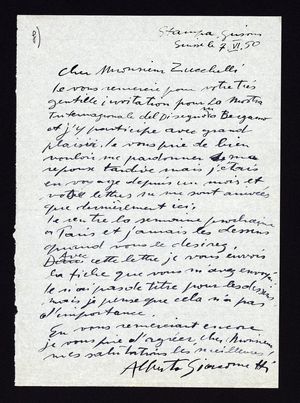 8)
Stampa Grisons
Suisse le 7 VI. 50
Cher Monsieur Zucchelli
Je vous remercie pour votre très
gentille invitation pour la Mostra
Internazionale del Disegno in Bergamo
et j'y participe avec grand
plaisir. Je vous prie de bien
vouloir me pardonner ma
réponse tardive mais j'étais
en voyage depuis un mois et
votre lettre ne me sont arrivée
que dernièrement ici.
Je rentre la semaine prochaine
à Paris et j'aurais les dessins
quand vous le désirez.
Avec cette lettre je vous envois
la fiche que vous m'avez envoyé.
Je n'ai pas de titre pour les dessins,
mais je pense que cela n'a pas
d'importance.
En vous remerciant encore
je vous prie d'agréer, cher Monsieur
mes salutations les meilleures!
Alberto Giacometti